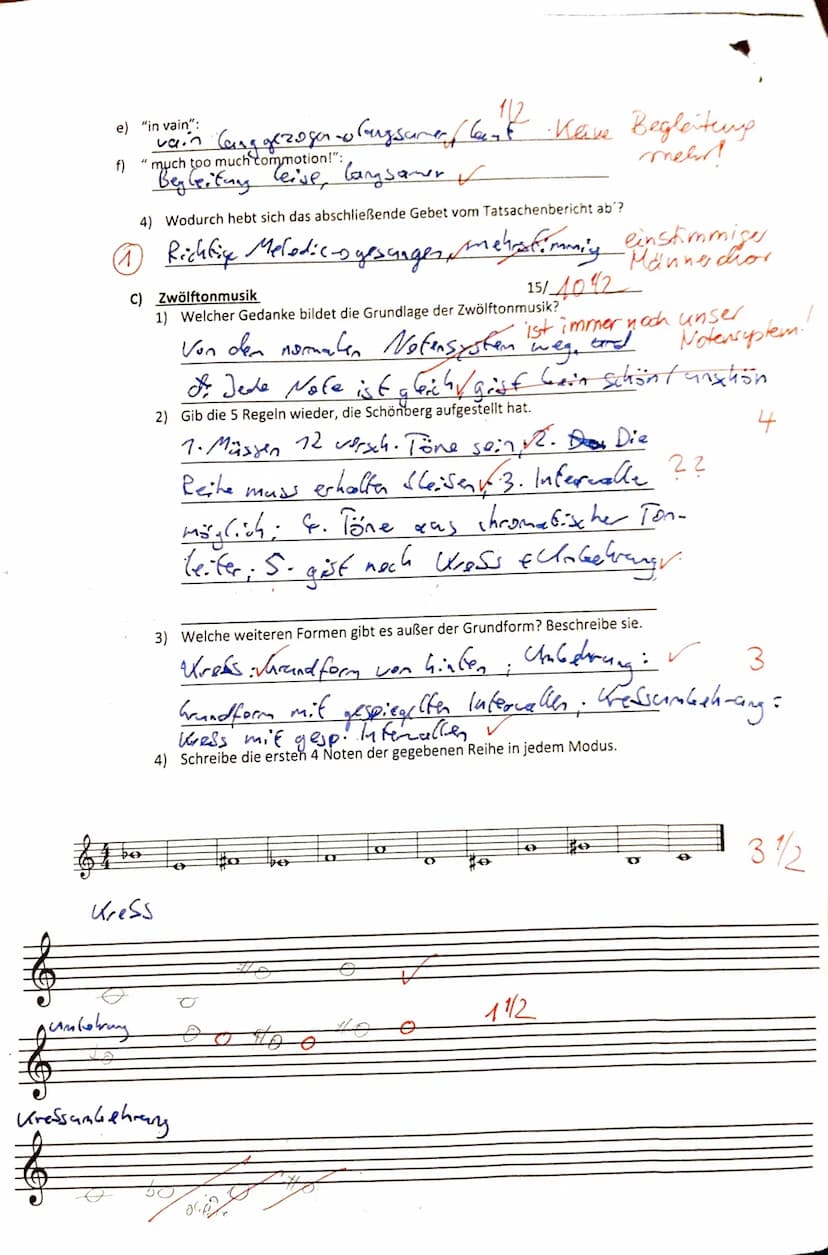 e) "in vain": 1/2
vain langgezogen → langsamer / laut · Keine Begleitung
mehr!
f) " much too much commotion!":
Begleitung leise, langsamer ✓
4) Wodurch hebt sich das abschließende Gebet vom Tatsachenbericht ab´?
1 Richtige Melodie → gesungen, mehrstimmig einstimmiger
Männerchor
C) Zwölftonmusik 15/ 10 1/2
1) Welcher Gedanke bildet die Grundlage der Zwölftonmusik?
ist immer noch unser
Von dem normalen Notensystem weg, und Notensystem!
Jede Note ist gleich ✓ gibt kein schön / unschön
2) Gib die 5 Regeln wieder, die Schönberg aufgestellt hat. 4
1. Müssen 12 versch. Töne sein, ✓ 2. Die
Reihe muss erhalten bleiben ✓, 3. Intervalle ??
möglich; 4. Töne aus chromatischer Ton-
leiter; 5. gibt noch Krebs + Umkehrung ✓
3) Welche weiteren Formen gibt es außer der Grundform? Beschreibe sie.
Krebs: ✓ Grundform von hinten; Umkehrung: ✓ 3
Grundform mit gespiegelten Intervallen; Krebsumkehrung:
Krebs mit gesp. Intervallen ✓
4) Schreibe die ersten 4 Noten der gegebenen Reihe in jedem Modus.
3 1/2
Krebs
✓
Umkehrung 1 1/2
Krebsumkehrung